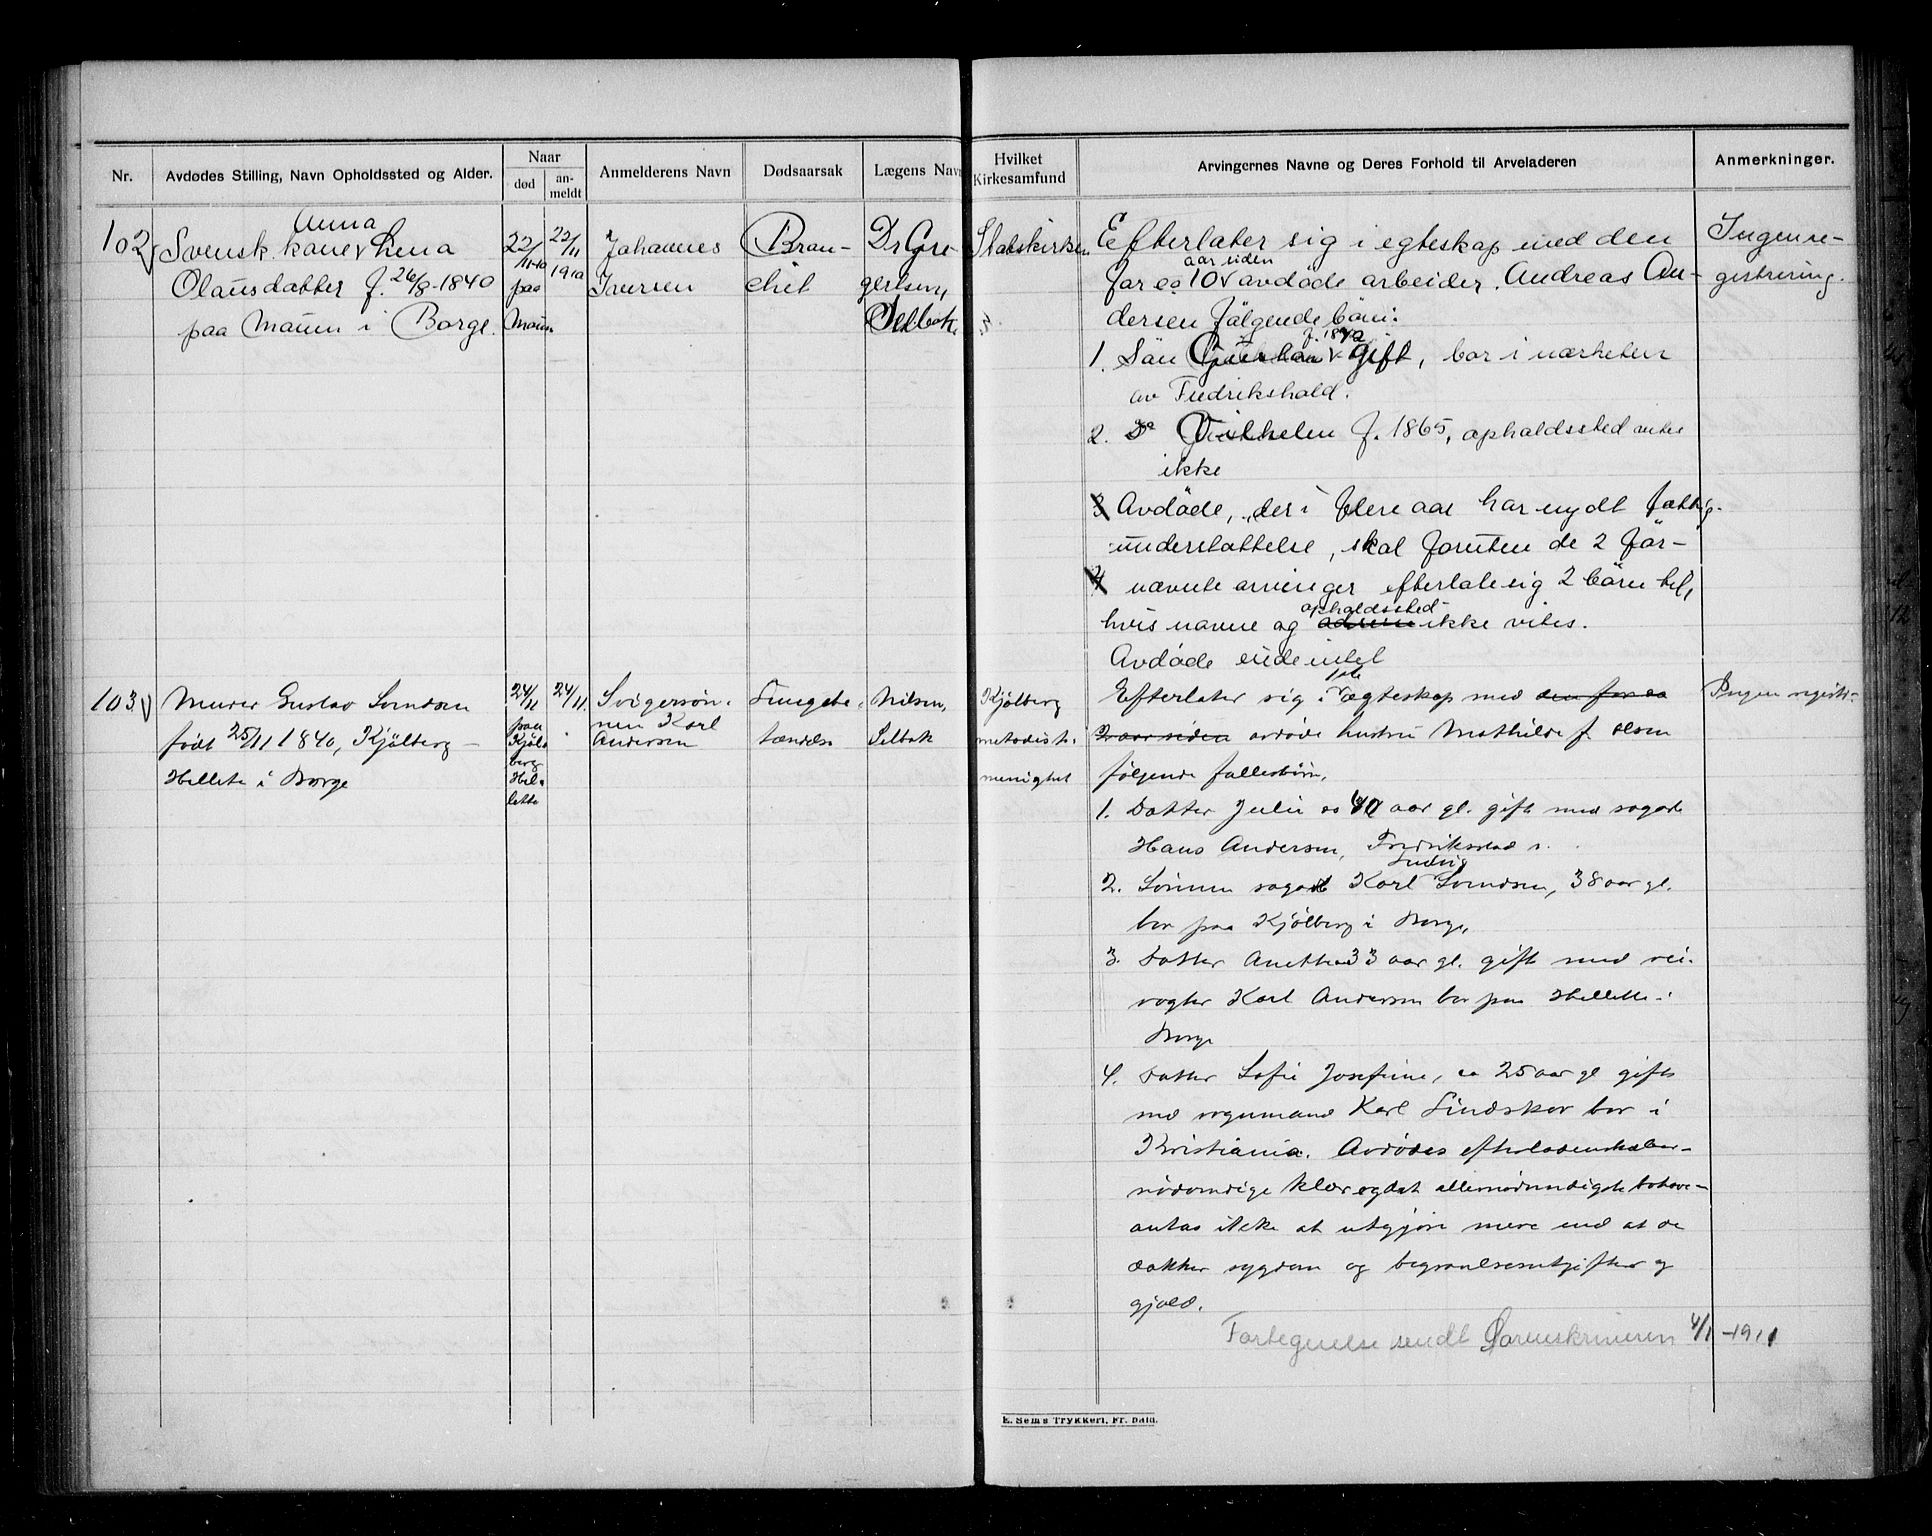 Nr.
Avdødes Stilling, Navn Opholdssted og Alder.
Naar
død
an-
meldt
Anmelderens Navn
Dødsaarsak
Lægens Navn
Hvilket
Kirkesamfund
Arvingernes Navne og Deres Forhold til Arveladeren
Anmerkninger.
102
Anna
Svensk kone Lena
Olausdatter f. 26/8-1840
paa Mauen i Borge.
22/
11-10
paa
Mauen
22/
11
1910
Johannes
Iversen
Bron-
chit
Dr Gre-
gersen,
Selbak
Statskirken
Efterlater sig i egteskap med den
aar siden
for ca 10 avdøde arbeider Andreas An-
dersen følgende børn:
f. 18
1. Søn gift, bor i nærheten
av Fredrikshald.
2. Do Vilhelm f. 1865, opholdssted vites
ikke
Avdøde, der i flere aar har nydt fattig-
understøttelse, skal foruten de 2 før-
nævnte arvinger efterlate sig 2 børn til,
opholdssted
hvis navne og ikke vites.
Avdøde eide intet
Ingen re-
gistrering.
103
Murer Gustav Svendsen
født 25/11 1840, Kjølberg-
Hellete i Borge
24/
11
paa
Kjøl-
berg
Hel-
lette
24/11.
Svigersøn-
nen Karl
Andersen
Lungebe-
tændelse
Nilsen,
Selbak
Kjølberg
metodist-
menighet
1ste
Efterlater sig i ægteskap med den for ca
2 aar siden avdøde hustru Mathilde f. Olsen
følgende fællesbørn,
1. Datter Julie ca 40 aar gl. gift med sagarb
Hans Andersen, Fredriksstad
Ludvig
2. Sønnen sagarb Karl Svendsen, 38 aar gl.
bor paa Kjølberg i Borge,
3. Datter Anette 33 aar gl. gift med vei-
vogter Karl Andersen bor paa Hellette i
Borge
4. Datter Sofie Josefine, ca 25 aar gl gift
med vognmand Karl Lindskov bor i
Kristiania. Avdødes efterladenskaber-
nødvendige klær og det allernødvendigste bohave-
antas ikke at utgjøre mere end at de
dækker sygdom og begravelsesutgifter og
gjæld.
Ingen registr.
Fortegnelse sendt Sorenskriveren 4/1 -1911
E. Sems Trykkeri, Fr. hald.